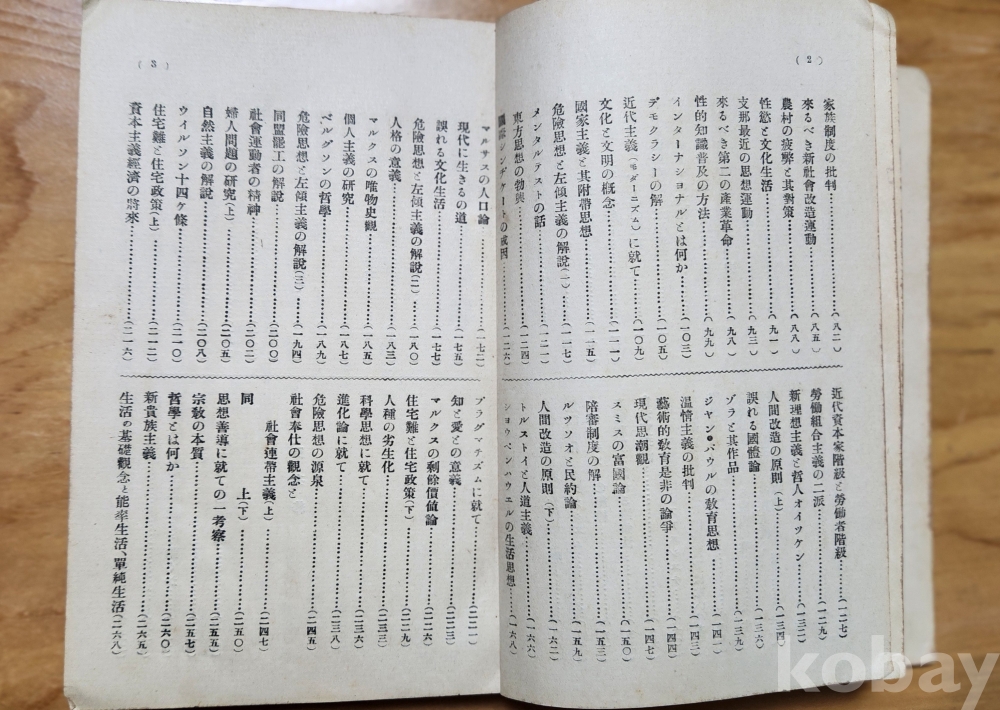 (2)
家族制度の批判……(八二)
來るべき新社會改造運動……(八五)
農村の疲弊と其對策……(八八)
性慾と文化生活……(九一)
支那最近の思想運動……(九三)
來るべき第二の產業革命……(九八)
性的知識普及の方法……(九九)
インターナショナルとは何か……(一〇三)
デモクラシーの解……(一〇五)
近代主義(モダーニズム)に就て……(一〇九)
文化と文明の概念……(一一一)
國家主義と其附帶思想……(一一五)
危險思想と左傾主義の解說(一)……(一一七)
メンタルテストの話……(一二一)
東方思想の勃興……(一二四)
シンヂケートの成因……(一二六)
近代資本家階級と勞働者階級……(一二七)
勞働組合主義の二派……(一二九)
新理想主義と哲人オイツケン……(一三二)
人間改造の原則(上)……(一三六)
誤れる國體論……(一三九)
ゾラと其作品
ジヤン・パウルの敎育思想……(一四一)
溫情主義の批判……(一四三)
藝術的敎育是非の論爭……(一四四)
現代思潮觀……(一四七)
スミスの富國論……(一五〇)
陪審制度の解……(一五三)
ルツソオと民約論……(一五九)
人間改造の原則(下)……(一六二)
トルストイと人道主義……(一六六)
シヨウペンハウエルの生活思想……(一六八)
(3)
マルサスの人口論……(一七二)
現代に生きるの道……(一七五)
誤れる文化生活……(一七七)
危險思想と左傾主義の解說(二)……(一八〇)
人格の意義……(一八三)
マルクスの唯物史觀……(一八五)
個人主義の研究……(一八七)
ベルグソンの哲學……(一八九)
危險思想と左傾主義の解說(三)……(一九四)
同盟罷工の解說……(二〇〇)
社會運動者の精神……(二〇二)
婦人問題の研究(上)……(二〇五)
自然主義の解說……(二〇八)
ウイルソン十四ケ條……(二一〇)
住宅難と住宅政策(上)……(二一二)
資本主義經濟の將來……(二一六)
プラグマテズムに就て……(二二一)
知と愛との意義……(二二三)
マルクスの剩餘價値論……(二二六)
住宅難と住宅政策(下)……(二二九)
人種の劣生化……(二三三)
科學思想に就て……(二三六)
進化論に就て……(二三八)
危險思想の源泉……(二四五)
社會奉仕の觀念と
社會連帶主義(上)……(二四七)
同 上(下)……(二五〇)
思想善導に就ての一考察……(二五五)
宗敎の本質……(二五七)
哲學とは何か……(二六〇)
新貴族主義……(二六五)
生活の基礎觀念と能率生活、單純生活(二六八)
kobay